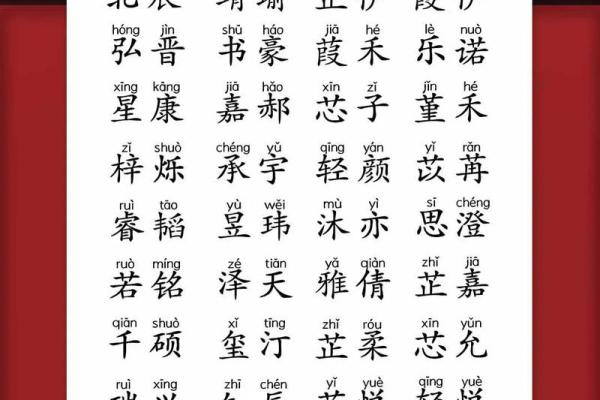 hóng jìn shū háo jiā hé lè nuò
弘晋 书豪 葭禾 乐诺
xīng kāng jiā hǎo xīn zǐ jǐn hé
星康 嘉郝 芯子 堇禾
zǐ shuò chéng yǔ qīng yán yǐ rǎn
梓烁 承宇 轻颜 苡苒
ruì tāo yù wěi mù yì sī chéng
睿韬 昱玮 沐亦 思澄
ruò míng zé tiān yǎ qiàn zhǐ jiā
若铭 泽天 雅倩 芷嘉
qiān shuò xǐ tīng zhǐ róu xīn yǔn
千硕 玺汀 芷柔 芯允
ruì xīng zhī chén yǐ yuè qīng yuè